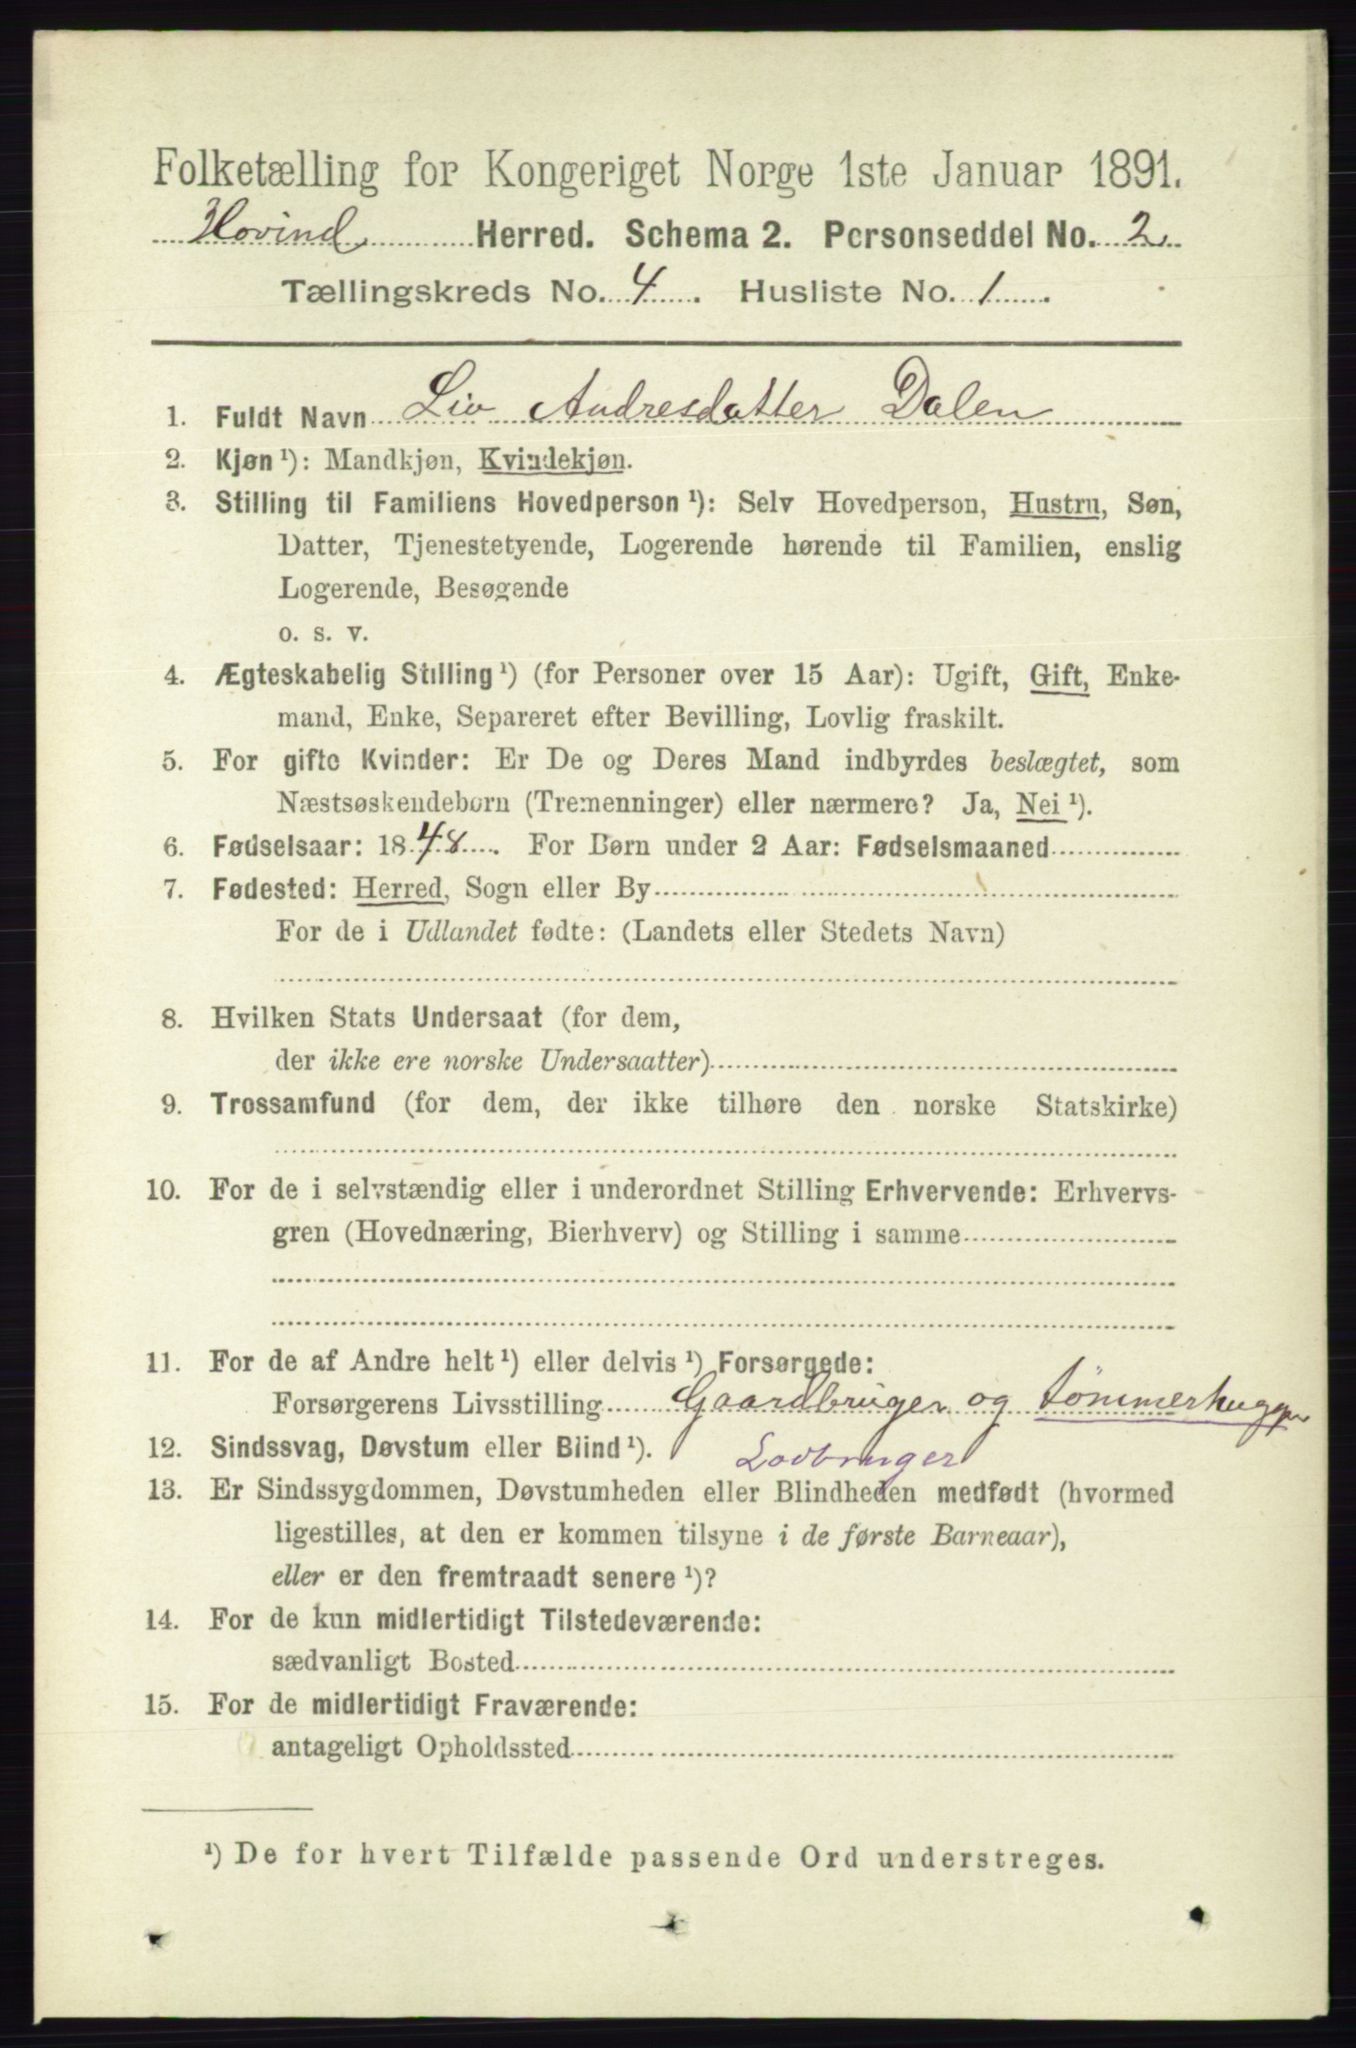 Folketælling for Kongeriget Norge 1ste Januar 1891.
Hovind Herred. Schema 2. Personseddel No. 2
Tællingskreds No. 4. Husliste No. 1.
1. Fuldt Navn Liv Andresdatter Dalen
2. Kjøn ¹): Mandkjøn, Kvindekjøn.
3. Stilling til Familiens Hovedperson ¹): Selv Hovedperson, Hustru, Søn,
Datter, Tjenestetyende, Logerende hørende til Familien, enslig
Logerende, Besøgende
o. s. v.
4. Ægteskabelig Stilling ¹) (for Personer over 15 Aar): Ugift, Gift, Enke-
mand, Enke, Separeret efter Bevilling, Lovlig fraskilt.
5. For gifte Kvinder: Er De og Deres Mand indbyrdes beslægtet, som
Næstsøskendebørn (Tremenninger) eller nærmere? Ja, Nei ¹).
6. Fødselsaar: 1848. For Børn under 2 Aar: Fødselsmaaned
7. Fødested: Herred, Sogn eller By
For de i Udlandet fødte: (Landets eller Stedets Navn)
8. Hvilken Stats Undersaat (for dem,
der ikke ere norske Undersaatter)
9. Trossamfund (for dem, der ikke tilhøre den norske Statskirke)
10. For de i selvstændig eller i underordnet Stilling Erhvervende: Erhvervs-
gren (Hovednæring, Bierhverv) og Stilling i samme
11. For de af Andre helt ¹) eller delvis ¹) Forsørgede:
Forsørgerens Livsstilling Gaardbruger og tømmerhugger
12. Sindssvag, Døvstum eller Blind ¹).
13. Er Sindssygdommen, Døvstumheden eller Blindheden medfødt (hvormed
ligestilles, at den er kommen tilsyne i de første Barneaar),
eller er den fremtraadt senere ¹)?
14. For de kun midlertidigt Tilstedeværende:
sædvanligt Bosted
15. For de midlertidigt Fraværende:
antageligt Opholdssted
¹) De for hvert Tilfælde passende Ord understreges.